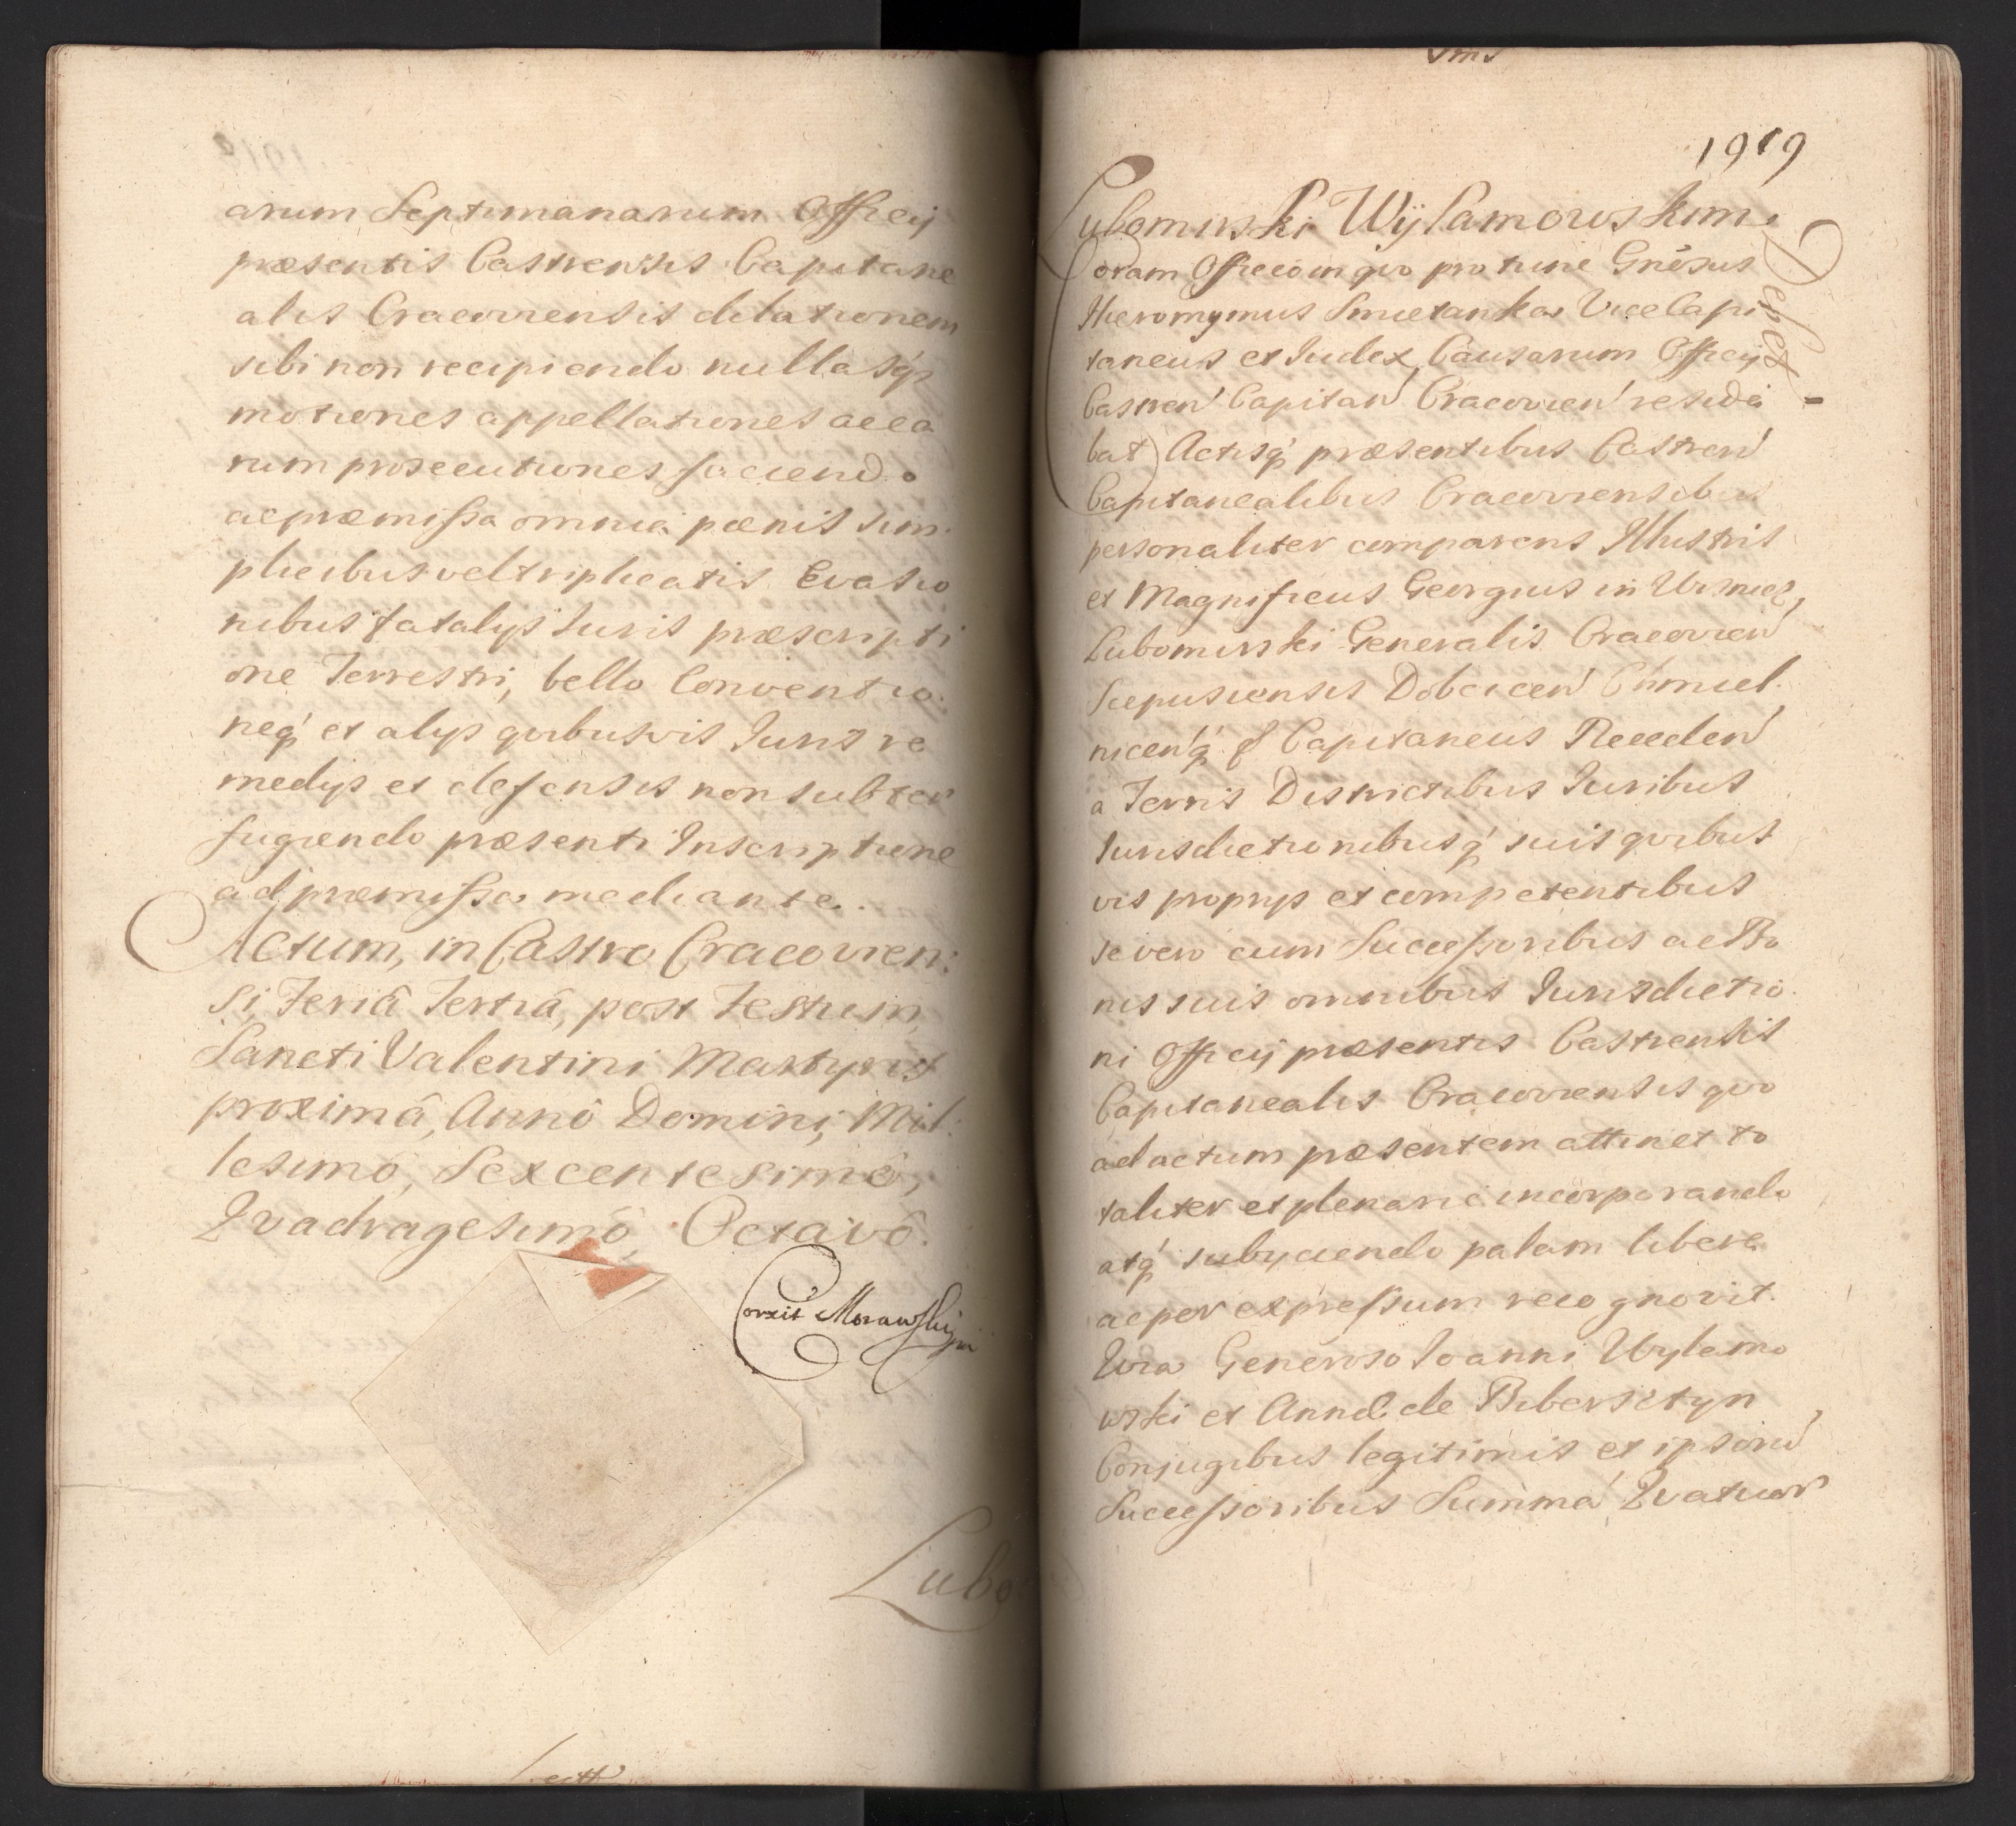 arum Septimanarum Officij
præsentis Castrensis Capitane
alis Cracoviensis dilationem
sibi non recipiendo nullasq́
motiones appellationes acea
rum prosecutiones faciendo
ac præmissa omnia pænis sim.
plicibus vel triplicatis Evasio
nibus fatalijs Iuris præscripti
one Terrestri, bello Conventio.
neq́ et alijs qvibusvis Iuris re
medijs et defensis non subter
fugiendo præsenti Inscriptione
ad præmissa mediante.
Actum, in Castro Cracovien:
si, Feriâ Tertiâ, post Festum
Sancti Valentini Martyris
proximâ, Annô Domini, Mil:
lesimô, Sexcentesimô,
Qvadragesimô, Octavô.
Corxit Morawskij
Lubo
1919
Lubomirski Wÿlamowskim
Coram Officio in qvo pro tunc Gnēsus
Hieronymus Smietanka Vice Capi
taneus et Iudex Causarum Officij
Castren Capitan Cracovien reside
bat) Actisq́ præsentibus Castren
Capitanealibus Cracoviensibus
personaliter comparens Illustris
et Magnificus Georgius in Wisnicz
Lubomirski Generalis Cracovien
Scepusiensis Dobcicen Chmiel.
nicenq́ Capitaneus Receden
a Terris Districtibus Iuribus
Iurisdictionibusq́ suis qvibus
vis proprijs et competentibus
se vero cum Successoribus ac Bo
nis suis omnibus Iurisdictio.
ni Officij præsentis Castrensis
Capitanealis Cracoviensis qvo
ad actum præsentem attinet to
taliter et plenarie incorporando
atq́ subyciendo palam libere
ac per expressum recognovit.
Qvia Generoso Ioanni Wylamo
wski et Annæ de Bibersztyn
Conjugibus legitimis et ipsorum
Successoribus Summā Qvatuor
Deset